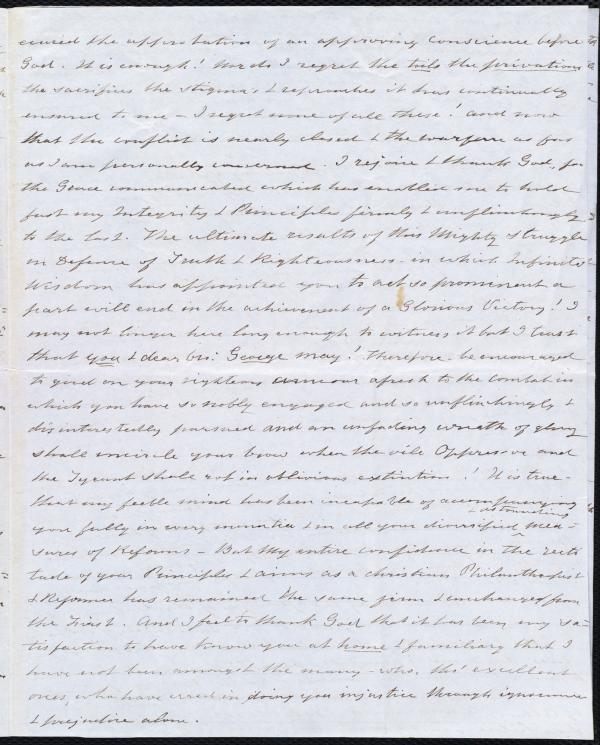 cured the approbation of an approving conscience before
God. It is enough! Nor do I regret the toils the privations
the sacrifices the stigmas & reproaches it has continually
ensured to me – I regret none of all these! and now
that the conflict is nearly closed & the warfare as far
as I am personally concerned. I rejoice & thank God, for
the Grace communicated which has enabled me to hold
fast my Integrity & Principles firmly & unflinchingly
to the last. The ultimate results of this Mighty struggle
in Defence of Truth & Righteousness – in which Infinite
Wisdom has appointed you to act so prominent a
part will end in the achievement of a Glorious Victory! I
may not longer here long enough to witness it but I trust
that you & dear bro: George may! Therefore be encouraged
to gird on your righteous armour afresh to the combat in
which you have so nobly engaged and so unflinchingly &
disinterestedly pursued and an unfading wreath of glory
shall encircle your brow when the vile Oppressor and
the Tyrant shall rot in oblivious extinction! It is true –
that my feeble mind has been incapable of accompanying
you fully in every minutia & in all your diversified mea=
sures of Reforms – But My entire confidence in the recti
tude of your Principles & aims as a christian Philanthropist
& Reformer has remained the same firm & unchanged from
the First. And I feel to thank God that it has been my sa=
tisfaction to have know you at home & familiary that I
have not been amongst the many – who, tho' excellent
ones, who have erred in doing you injustice through ignorance
& prejudice alone.